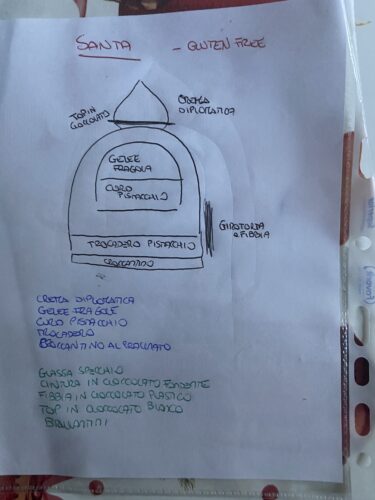 SANTA - GLUTEN FREE
TOP IN
CIOCCOLATO
CREMA
DIPLOMATICA
GELEE
FRAGOLA
CURO
PISTACCHIO
GIROTORTA
e FIBBIA
TROCADERO PISTACCHIO
CROCCANTINO
CREMA DIPLOMATICA
GELEE FRAGOLE
CURO PISTACCHIO
TROCADERO
CROCCANTINO AL
GLASSA SPECCHIO
CINTURA IN CIOCCOLATO FONDENTE
FIBBIA IN CIOCCOLATO PLASTICO
TOP IN CIOCCOLATO BIANCO
BRILLANTINI